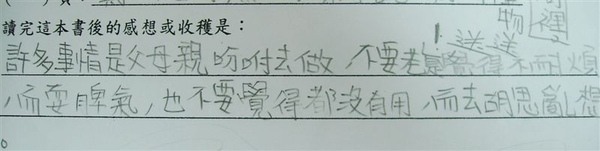 物裡
讀完這本書後的感想或收穫是：
送送
許多事情是父母親吩咐去做，不要老是覺得不耐煩
，而耍脾氣，也不要覺得都沒有用，而去胡思亂想
。